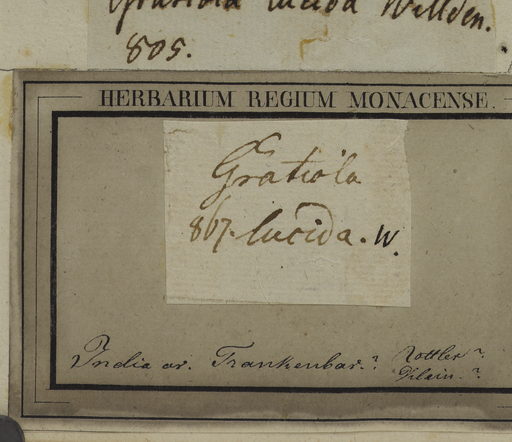 Gratiola lucida Willden.
805.
HERBARIUM REGIUM MONACENSE.
Gratiola
867. lucida. W.
India or. Trankenbar.? Rottler?
Klein.?